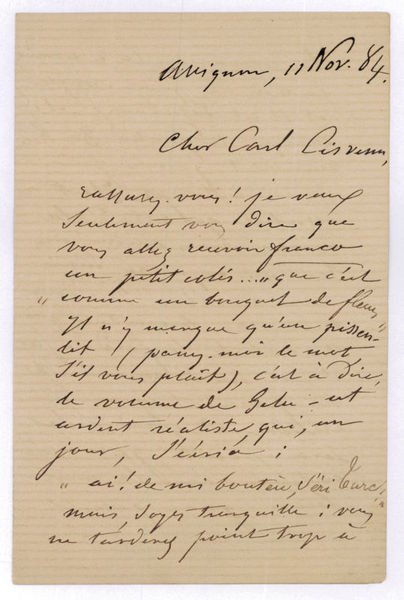 Avignon, 11 Nov. 84.
Cher Carl
rassurez-vous ! je veux
seulement vous dire que
vous allez recevoir franco
un petit colis... „ que c'est
“ comme un bouquet de fleurs „
Il n'y manque qu'un pissen-
lit ! ( passez-moi le mot
s'il vous plaît ), c'est à dire,
le volume de Gelu - cet
ardent réaliste qui, un
jour, s'écria :
“ ai ! de mi boutèu, s'èri Turc ! „
mais soyez tranquille : vous
ne tarderez point trop à